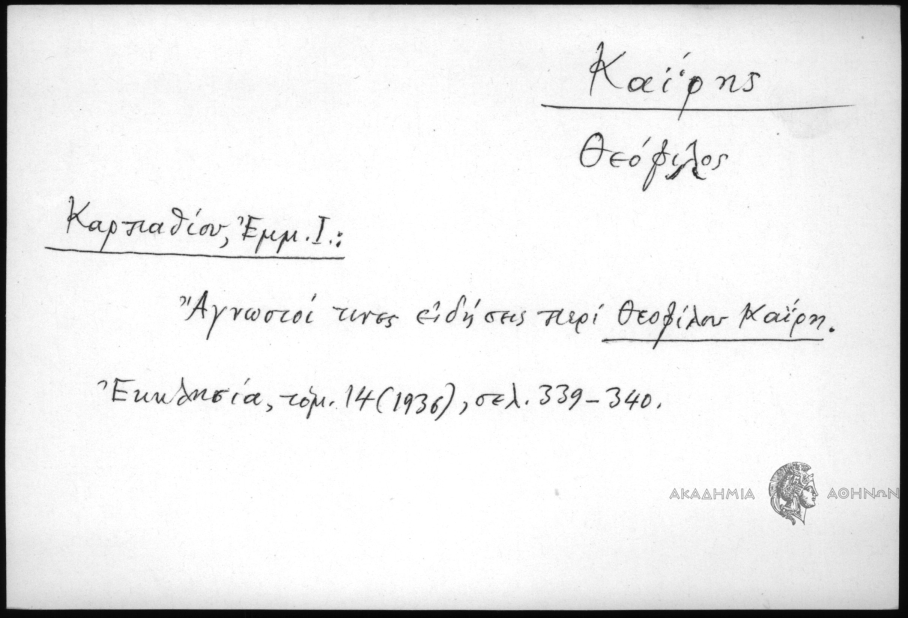 Καΐρης
Θεόφιλος
Καρπαθίου, Ἐμμ. Ι.:
Ἄγνωστοί τινες εἰδήσεις περί Θεοφίλου Καΐρη.
Ἐκκλησία, τόμ. 14 (1936), σελ. 339-340.
ΑΚΑΔΗΜΙΑ ΑΘΗΝΩΝ